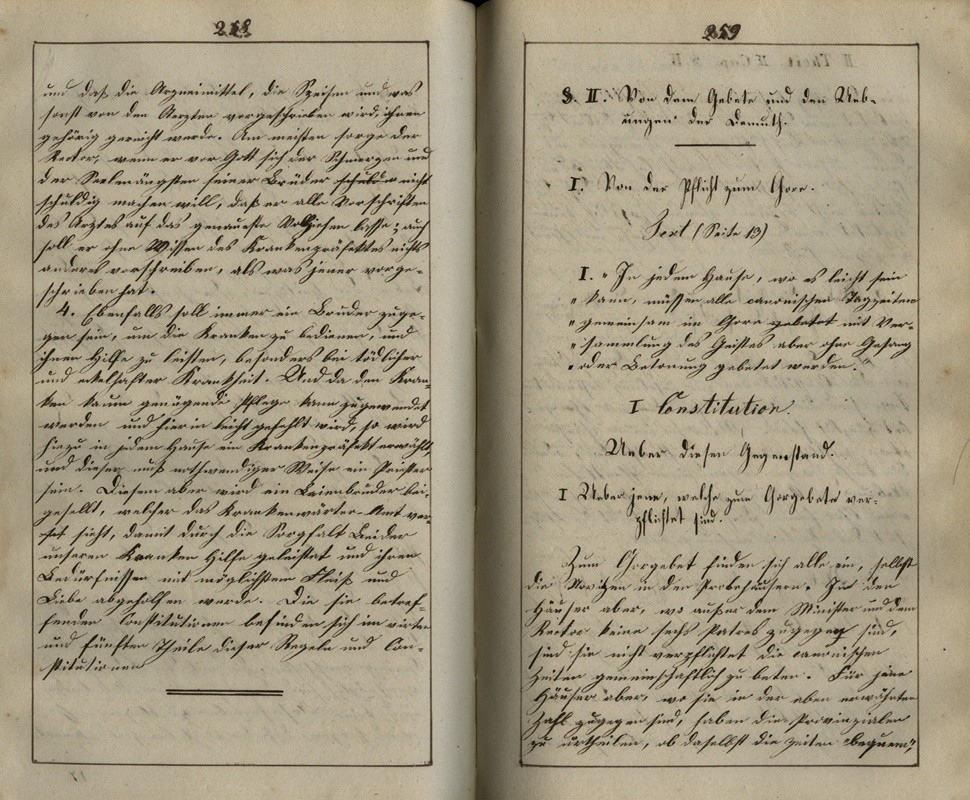 258
und daß die Arzneimittel, die Speisen und was
sonst von den Aerzten vorgeschrieben wird, ihnen
gehörig gereicht werde. Am meisten sorge der
Rector, wenn er vor Gott sich der Schmerzen und
der Seelenängsten seiner Brüder nicht
schuldig machen will, daß er alle Vorschriften
des Arztes auf das genaueste Vollziehen lasse; auch
soll er ohne Wissen des Krankenpräfektes nichts
anderes vorschreiben, als was jener vorge-
schrieben hat.
4. Ebenfalls soll immer ein Bruder zuge-
gen sein, um die Kranken zu bedienen, und
ihnen Hilfe zu leisten, besonders bei tödlicher
und ekelhafter Krankheit. Und da den Kran-
ken kaum genügende Pflege kann zugewendet
werden und hierin leicht gefehlt wird, so wird
hiezu in jedem Hause ein Krankenpräfekt erwählt,
und dieser muß nothwendiger Weise ein Priester
sein. Diesem aber wird ein Laienbruder bei-
gesellt, welcher das Krankenwärter-Amt ver-
sieht, damit durch die Sorgfalt Beider
unseren Kranken Hilfe geleistet und ihren
Bedürfnissen mit möglichstem Fleiß und
Liebe abgeholfen werde. Die sie betref-
fenden Constitutionen befinden sich im vierten
und fünften Theile dieser Regeln und Con-
stitutionen
259
§. II. Von dem Gebete und den Ueb-
ungen der Demuth.
I. Von der Pflicht zum Chore.
Text (Seite 19)
I. „In jedem Hause, wo es leicht sein
„kann, müssen alle canonischen Tagzeiten
„gemeinsam im Chore gebetet mit Ver-
„sammlung des Geistes aber ohne Gesang
„oder Betonung gebetet werden.“
I Constitution.
Ueber diesen Gegenstand.
I Ueber jene, welche zum Chorgebete ver-
pflichtet sind.
Zum Chorgebet finden sich alle ein, selbst
die Novitzen in den Probehäusern. In den
Häuser aber, wo außer dem Minister und dem
Rector keine sechs Patres zugegen sind,
sind sie nicht verpflichtet die canonischen
Zeiten gemeinschaftlich zu beten. Für jene
Häuser aber, wo sie in der eben erwähnten
Zahl zugegen sind, haben die Provinzialen
zu urtheilen, ob daselbst die Zeiten bequem